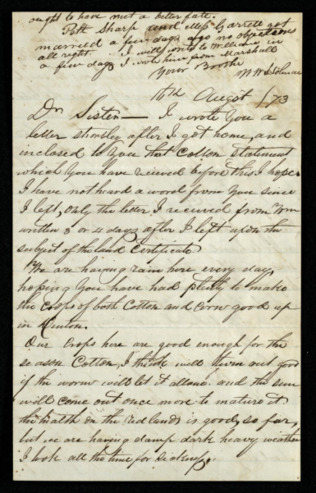 ought to have met a better fate.
Pete Sharp and Miss Garrett got
married a few days ago no objections
all right I will write to William in
a few days I will write him from Marshall
Your Brother
M W
16th Augst /73
Dr Sister — I wrote you a
letter shortly after I got home, and
inclosed to you that Cotton Statement
which you have received before this I hope
I have not heard a word from you since
I left, only the letter I received from Wm
written 3 or 4 days after I left upon the
subject of the land Certificate
We are having rain here every day
hoping you have had plenty to make
the crops of both Cotton and Corn good up
in
Our Crops here are good enough for the
season Cotton, I think will turn out good
if the worm will let it alone. and the sun
will come out once more to mature it
the health in the red lands is good, so far,
but we are having damp dark heavy weather
I look all the time for sickness.